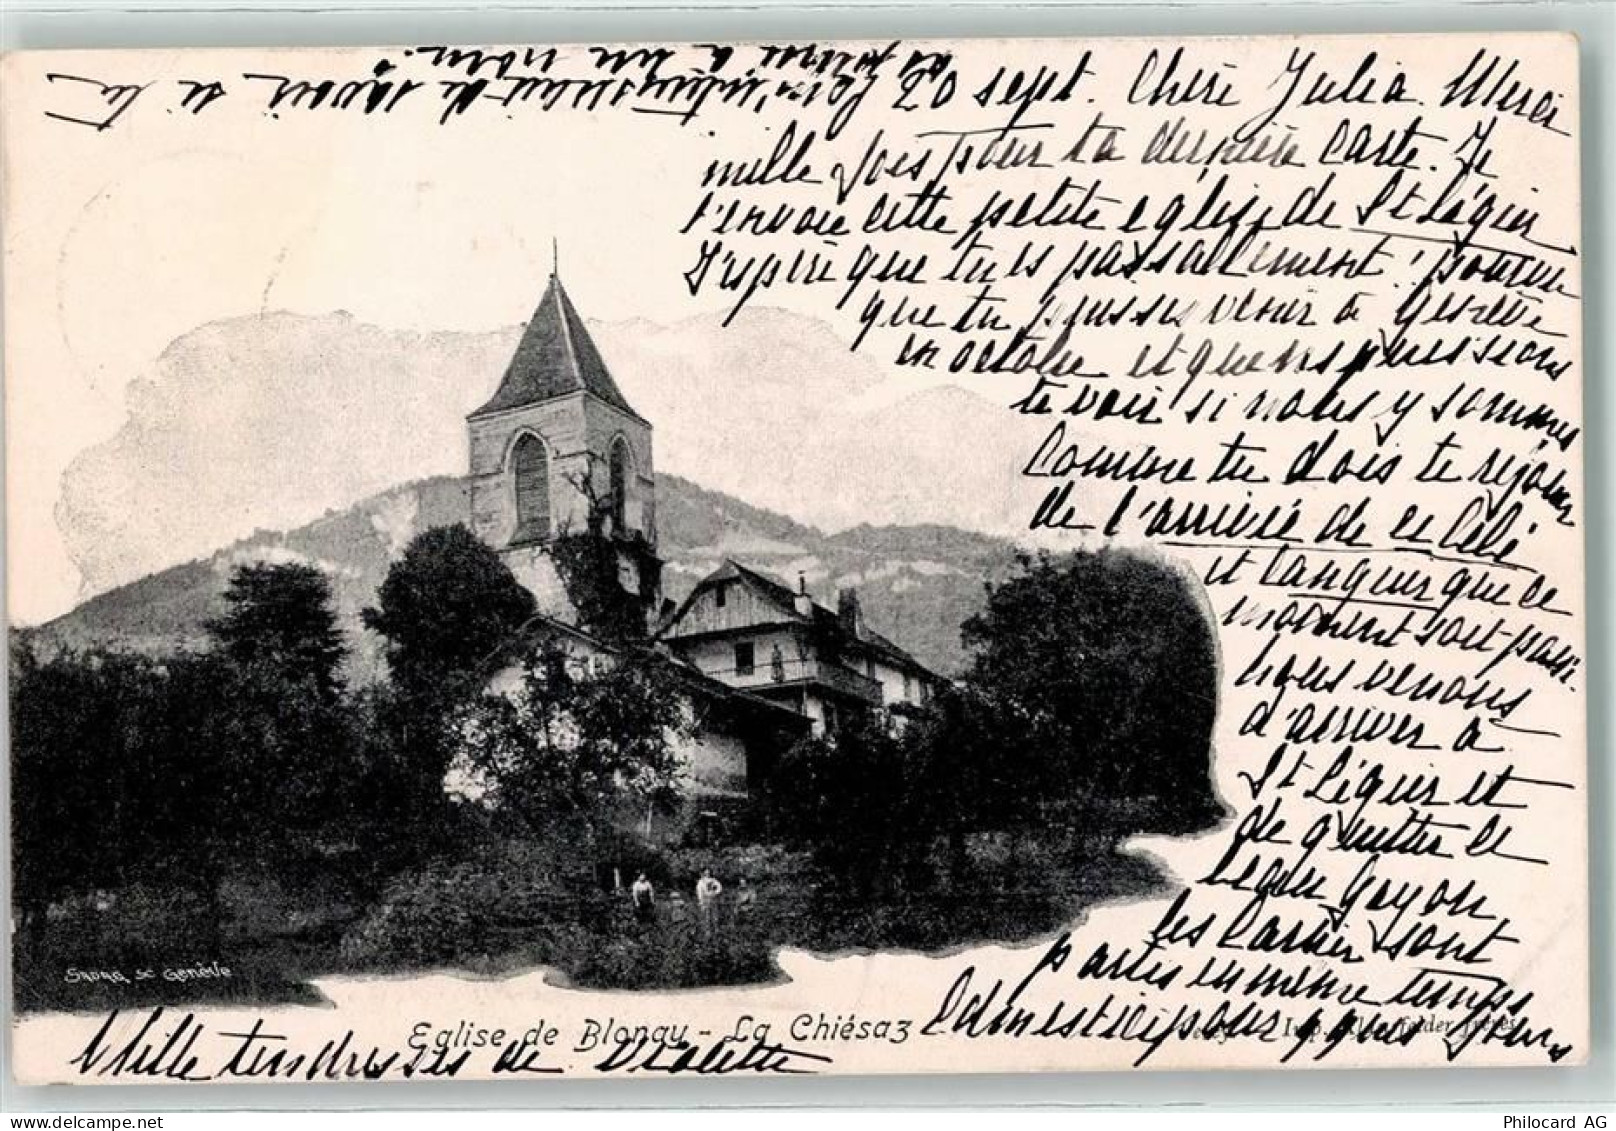 20 sept. Chère Julia. Merci
mille fois pour ta dernière carte. Je
t'envoie cette petite eglise de St Légier
J'espère que tu es pas seulement! pourvu
que tu puisses venir à Genève
en octobre et que ns puissions
te voir si nous y sommes
Comme tu dois te réjouir
de l'arrivée de ce bébé
et languir que ce
moment soit passé.
nous venons
d'arriver à
St Légier et
de quitter ce
les Cartier sont
parties en même temps
Edm est ici pour qques jours
Mille tendresses de Violette
Eglise de Blonay - La Chiésaz
Vevey - Imp. Klausfelder frères
SADAG Sc Genève
Philocard AG